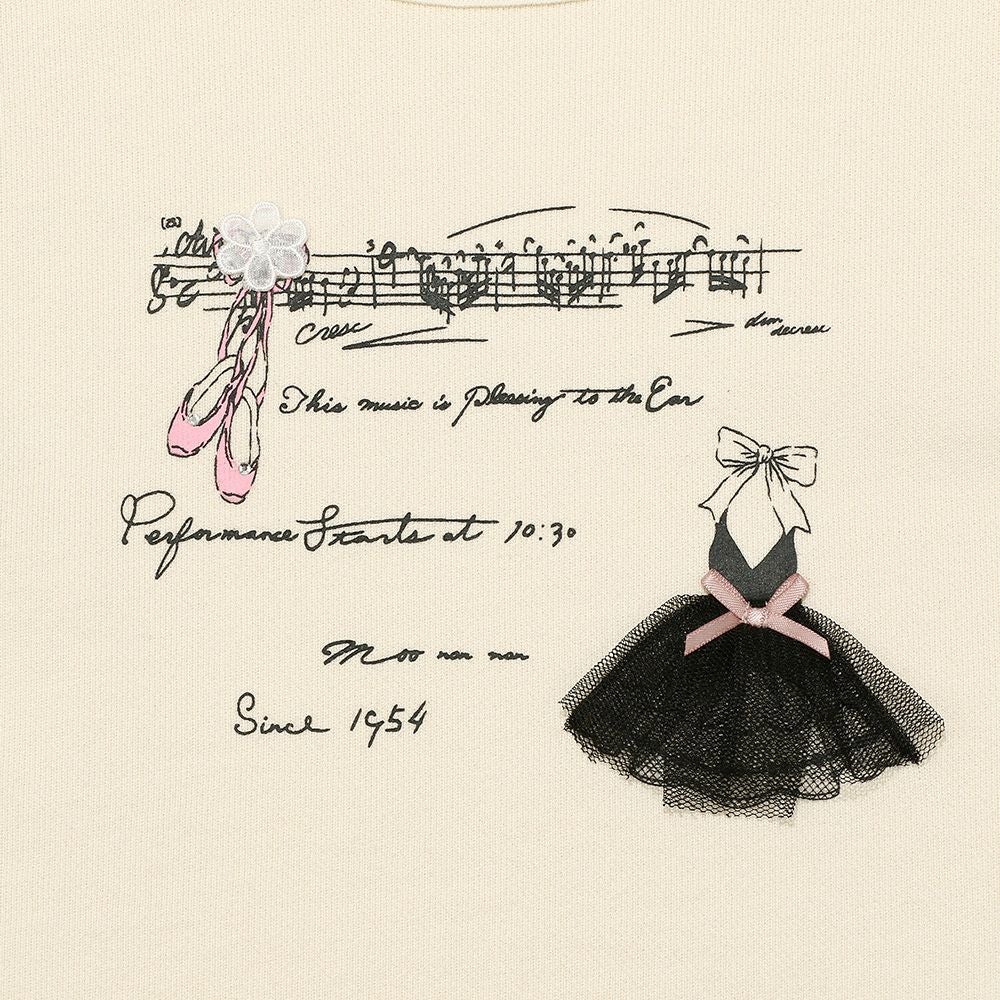 cresc
dim
decresc
This music is pleasing to the Ear
Performance Starts at 10:30
Moo nan nan
Since 1954